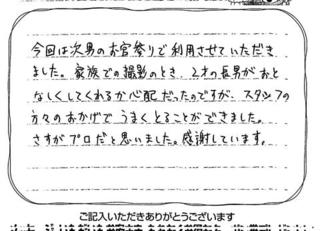 今回は次男のお宮参りで利用させていただき
ました。家族での撮影のとき、2才の長男がおと
なしくしてくれるか心配だったのですが、スタッフの
方々のおかげでうまくとることができました。
さすがプロだと思いました。感謝しています。
ご記入いただきありがとうございます